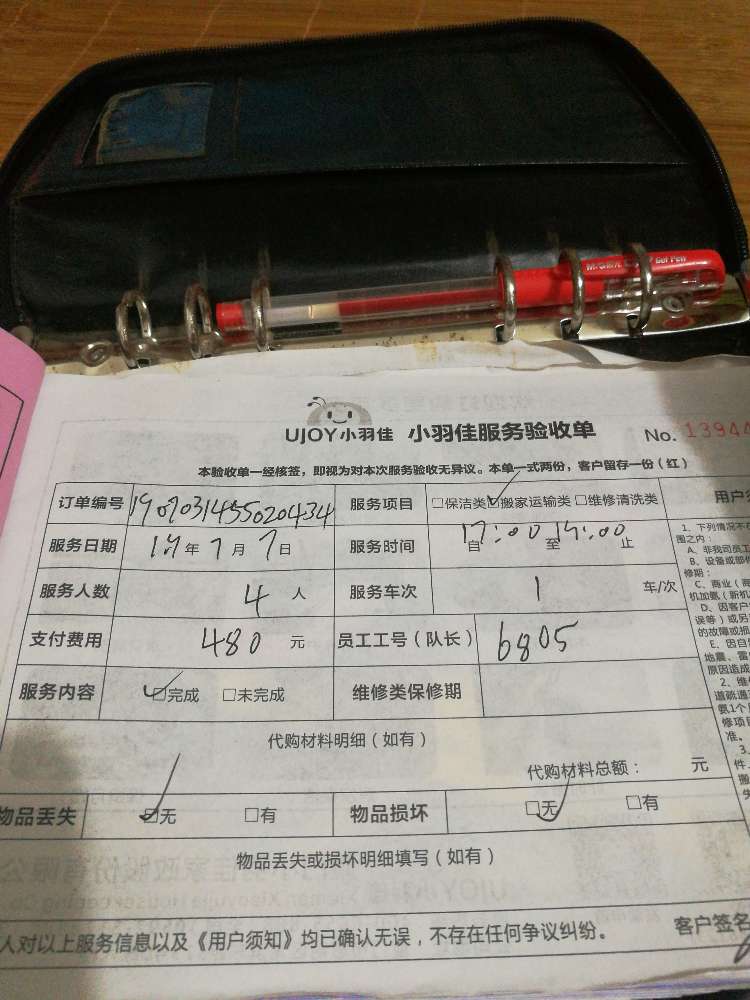 M&G Gel Pen
UJOY小羽佳 小羽佳服务验收单 No. 13944
本验收单一经核签，即视为对本次服务验收无异议。本单一式两份，客户留存一份（红）
订单编号 190703145502043​4 服务项目 □保洁类 ☑搬家运输类 □维修清洗类
服务日期 19年7月7日 服务时间 自17:00至19:00止
服务人数 4人 服务车次 1 车/次
支付费用 480 元 员工工号（队长） 6805
服务内容 ☑完成 □未完成 维修类保修期
代购材料明细（如有）
代购材料总额： 元
物品丢失 ☑无 □有 物品损坏 ☑无 □有
物品丢失或损坏明细填写（如有）
人对以上服务信息以及《用户须知》均已确认无误，不存在任何争议纠纷。 客户签名
用户
1、下列情况不
围之内：
A、非我司员工
B、设备或部
修期：
C、商业（商
机加氨（新机
D、因客户
误等）或另
的故障或损
E、因自
地震、雷
原因造成
2、维
道疏通
氨1个月
修项目
准。
3、
件、
搬
失